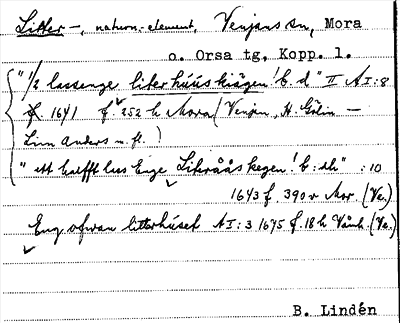 Litter-, naturn.-element, Venjans sn, Mora
o. Orsa tg, Kopp. l.
"1/2 lassenge literhúús kiägen! b. d" II A I:8
f. 1641 f. 252 h Mora (Venjen, H. Gölin —
Linn Anders m. fl.)
"ett halfft lus Enge Literååskegen! b:dh" :10
1643 f. 390 v Mor. (Ve.)
Eng ofwan litterhúset A I:3 1675 f. 18 h Vämh. (Ve.)
B. Lindén